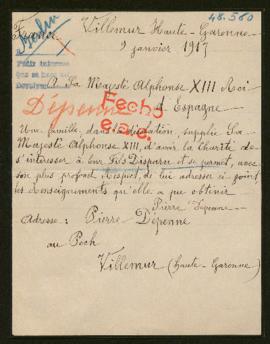 48.560
Berlin
Villemur Haute-Garonne
9 janvier 1917
A Sa Majesté Alphonse XIII Roi
d'Espagne
Dépenne
Fecho
Une famille, dans la désolation, supplie Sa
Majesté Alphonse XIII, d'avoir la Charité de
s'intéresser à leur Fils Disparu et se permet, avec
son plus profond Respect, de lui adresser ci-joint
les Renseignements qu'elle a pu obtenir
Pierre Dépenne
Adresse : Pierre Dépenne
au Pech
Villemur (Haute-Garonne)